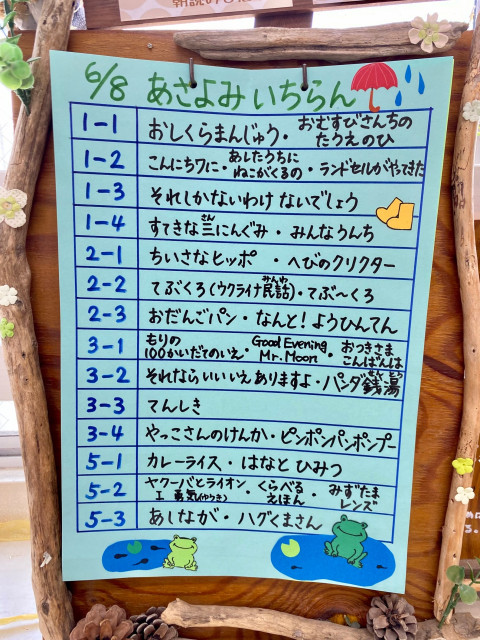 6/8 あさよみ いちらん
1-1 おしくらまんじゅう・おむすびさんちの
たうえのひ
1-2 こんにちワに・あしたうちに
ねこがくるの・ランドセルがやってきた
1-3 それしかないわけ ないでしょう
1-4 すてきな三(さん)にんぐみ・みんなうんち
2-1 ちいさなヒッポ・へびのクリクター
2-2 てぶくろ(ウクライナ民話(みんわ))・てぶ〜くろ
2-3 おだんごパン・なんと!ようひんてん
3-1 もりの
100かいだてのいえ・Good Evening
Mr. Moon・おつきさま
こんばんは
3-2 それならいいいえありますよ・パンダ銭湯(せんとう)
3-3 てんしき
3-4 やっこさんのけんか・ピンポンパンポンプー
5-1 カレーライス・はなと ひみつ
5-2 ヤクーバとライオン
I 勇気(ゆうき)・くらべる
えほん・みずたま
レンズ
5-3 あしなが・ハグくまさん